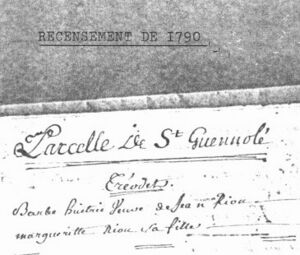 RECENSEMENT DE 1790
Parcelle De St Guennolé
Tréodet.
Barbe huitric Veuve de Jean Riou
margueritte Riou sa fille